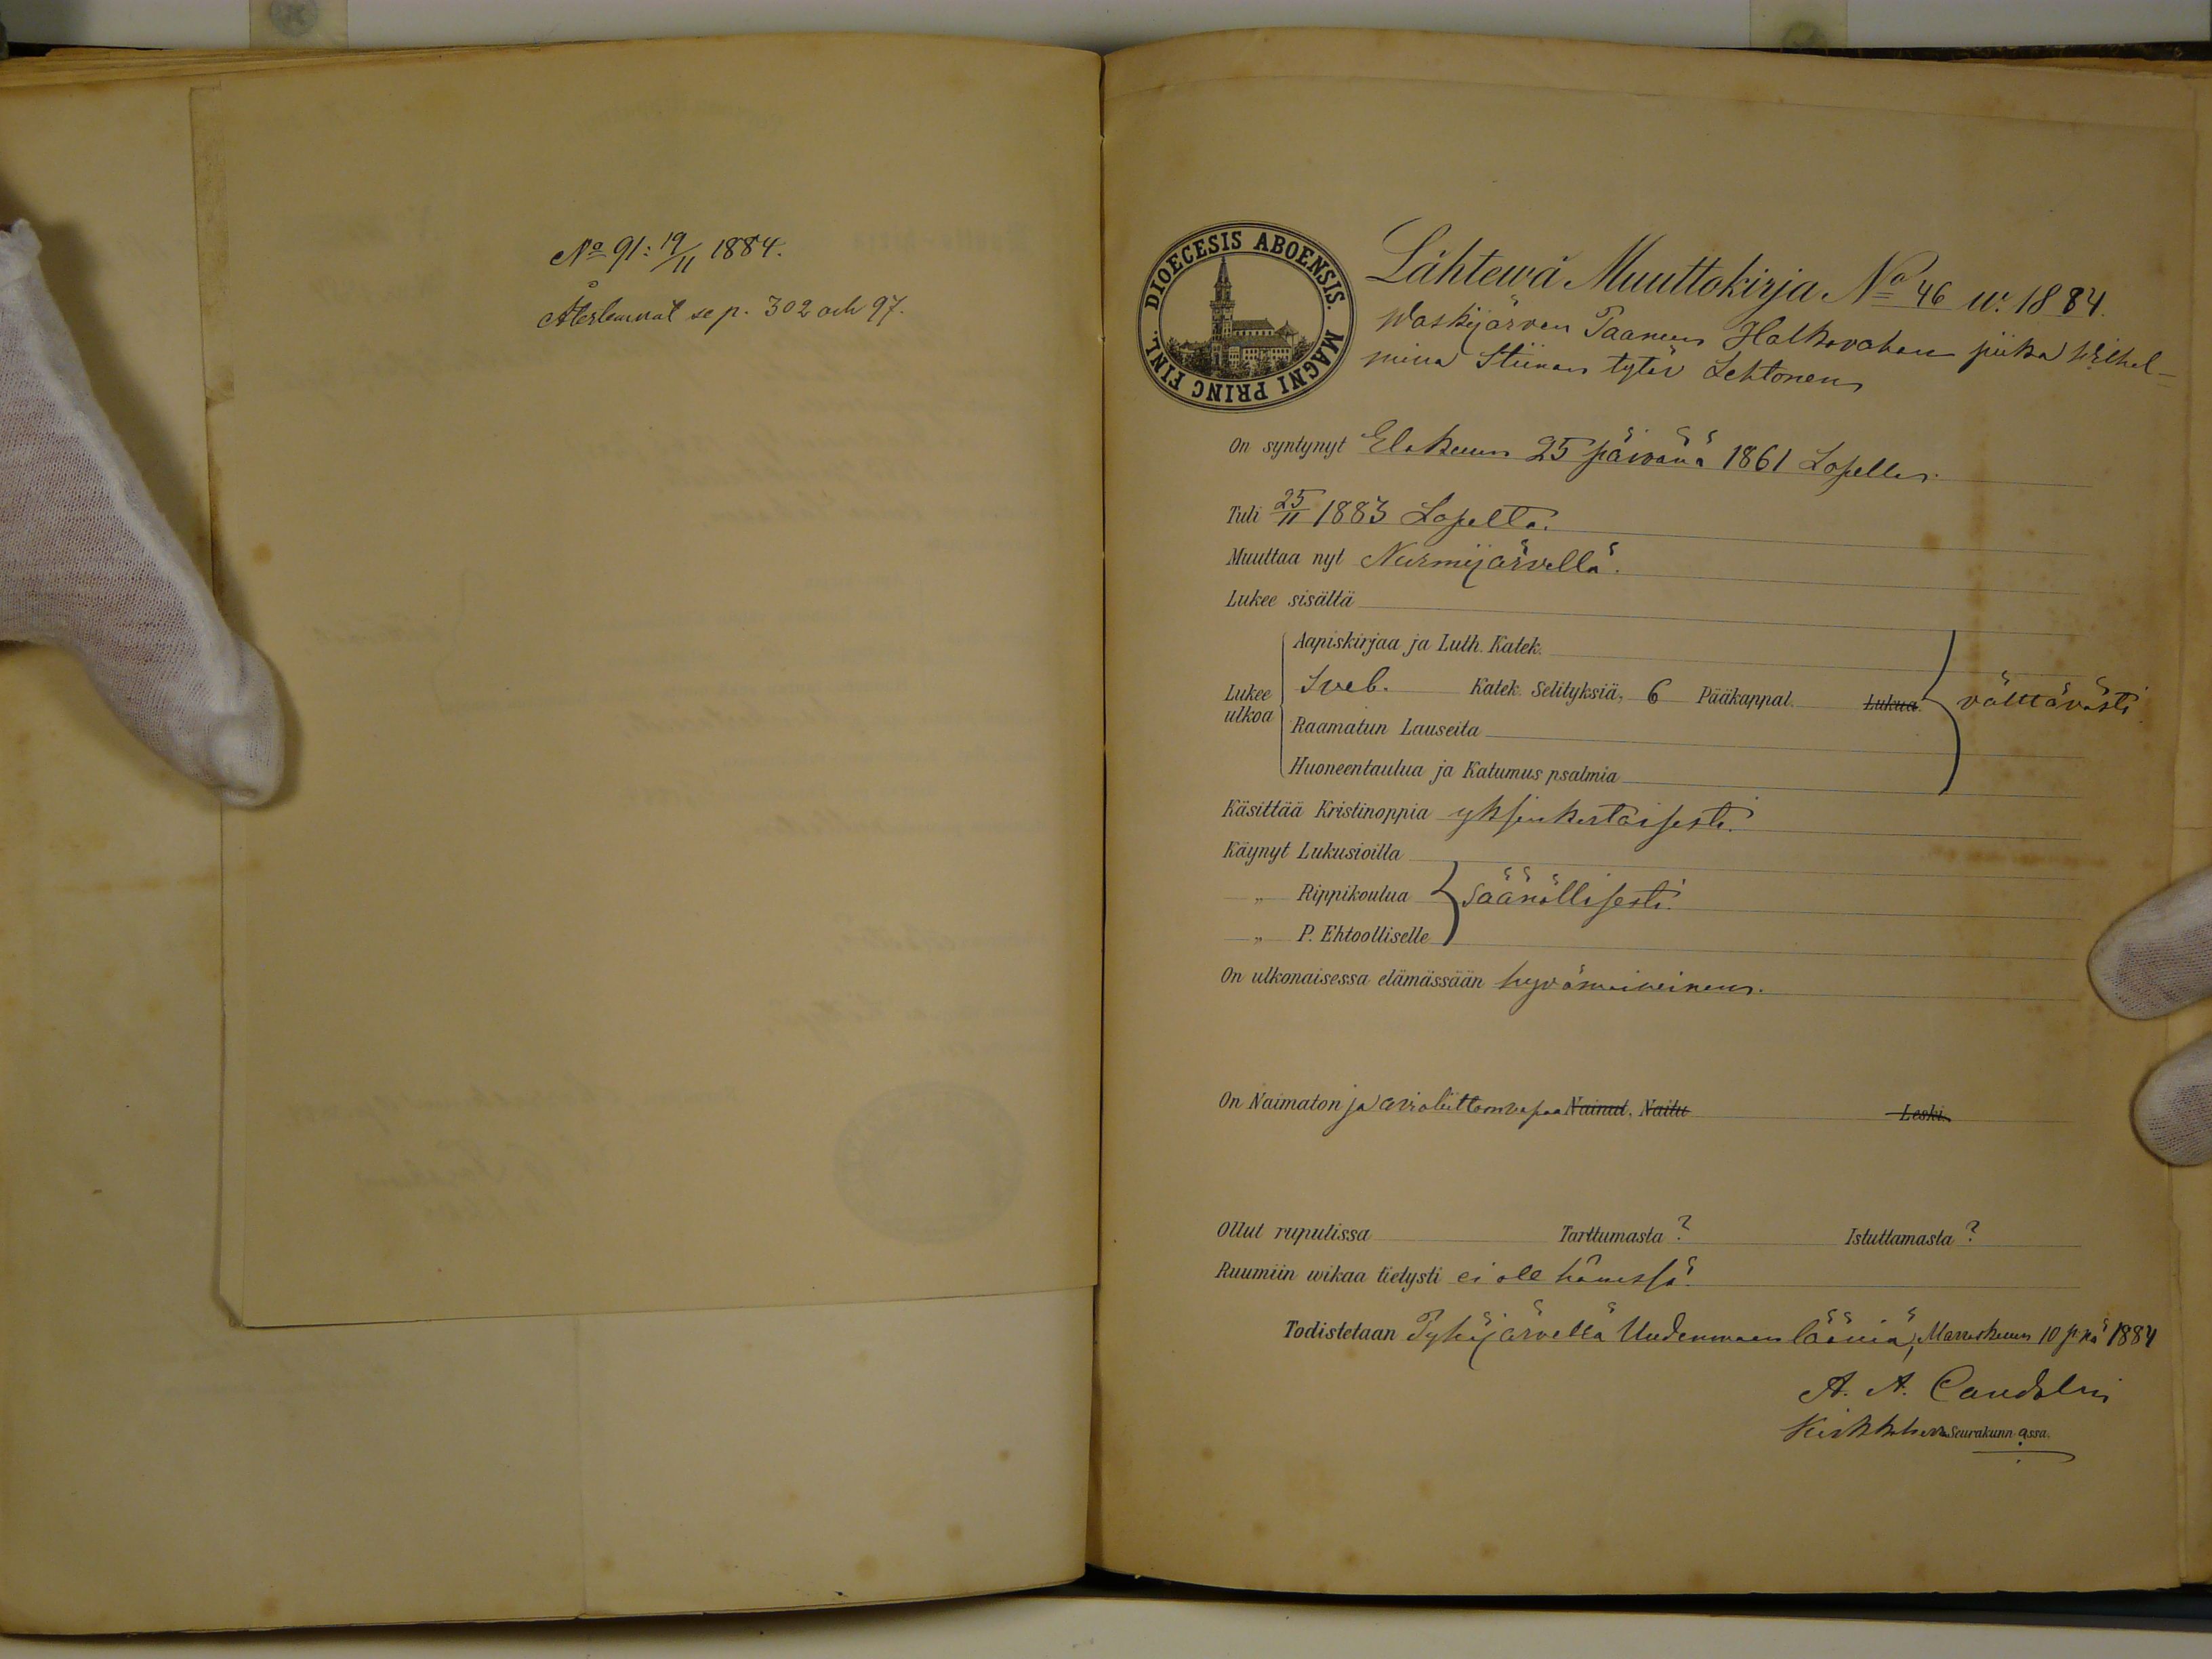 No 91: 19/11 1884.
Återkommit se p. 302 och 97.
DIOECESIS ABOENSIS. MAGNI PRINC FINL.
Lähtewä Muuttokirja No 46 w. 1884.
Waskijärven Paanun Halkovahan piika Wilhel-
mina Stiinan tytär Lehtonen
On syntynyt Elokuun 25 päivänä 1861 Lopella.
Tuli 25/11 1883 Lopelta.
Muuttaa nyt Nurmijärvellä.
Lukee sisältä
Aapiskirjaa ja Luth. Katek.
Lukee ulkoa Sveb. Katek. Selityksiä, 6 Pääkappal. Lukua. välttävästi
Raamatun Lauseita
Huoneentaulua ja Katumus psalmia
Käsittää Kristinoppia yksinkertaisesti.
Käynyt Lukusioilla
„ Rippikoulua säänöllisesti.
„ P. Ehtoolliselle
On ulkonaisessa elämässään hyvämaineinen.
On Naimaton ja avioliittoon vapaa Nainut. Naitu Leski.
Ollut rupulissa Tarttumasta? Istuttamasta?
Ruumiin wikaa tietysti ei ole hänessä.
Todistetaan Pyhäjärvellä Uudenmaan lääniä, Marraskuun 10 pnä 1884
A. A. Candolin
Kirkkoherra Seurakunnassa.